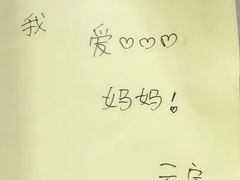 我 爱♡♡♡
妈妈！